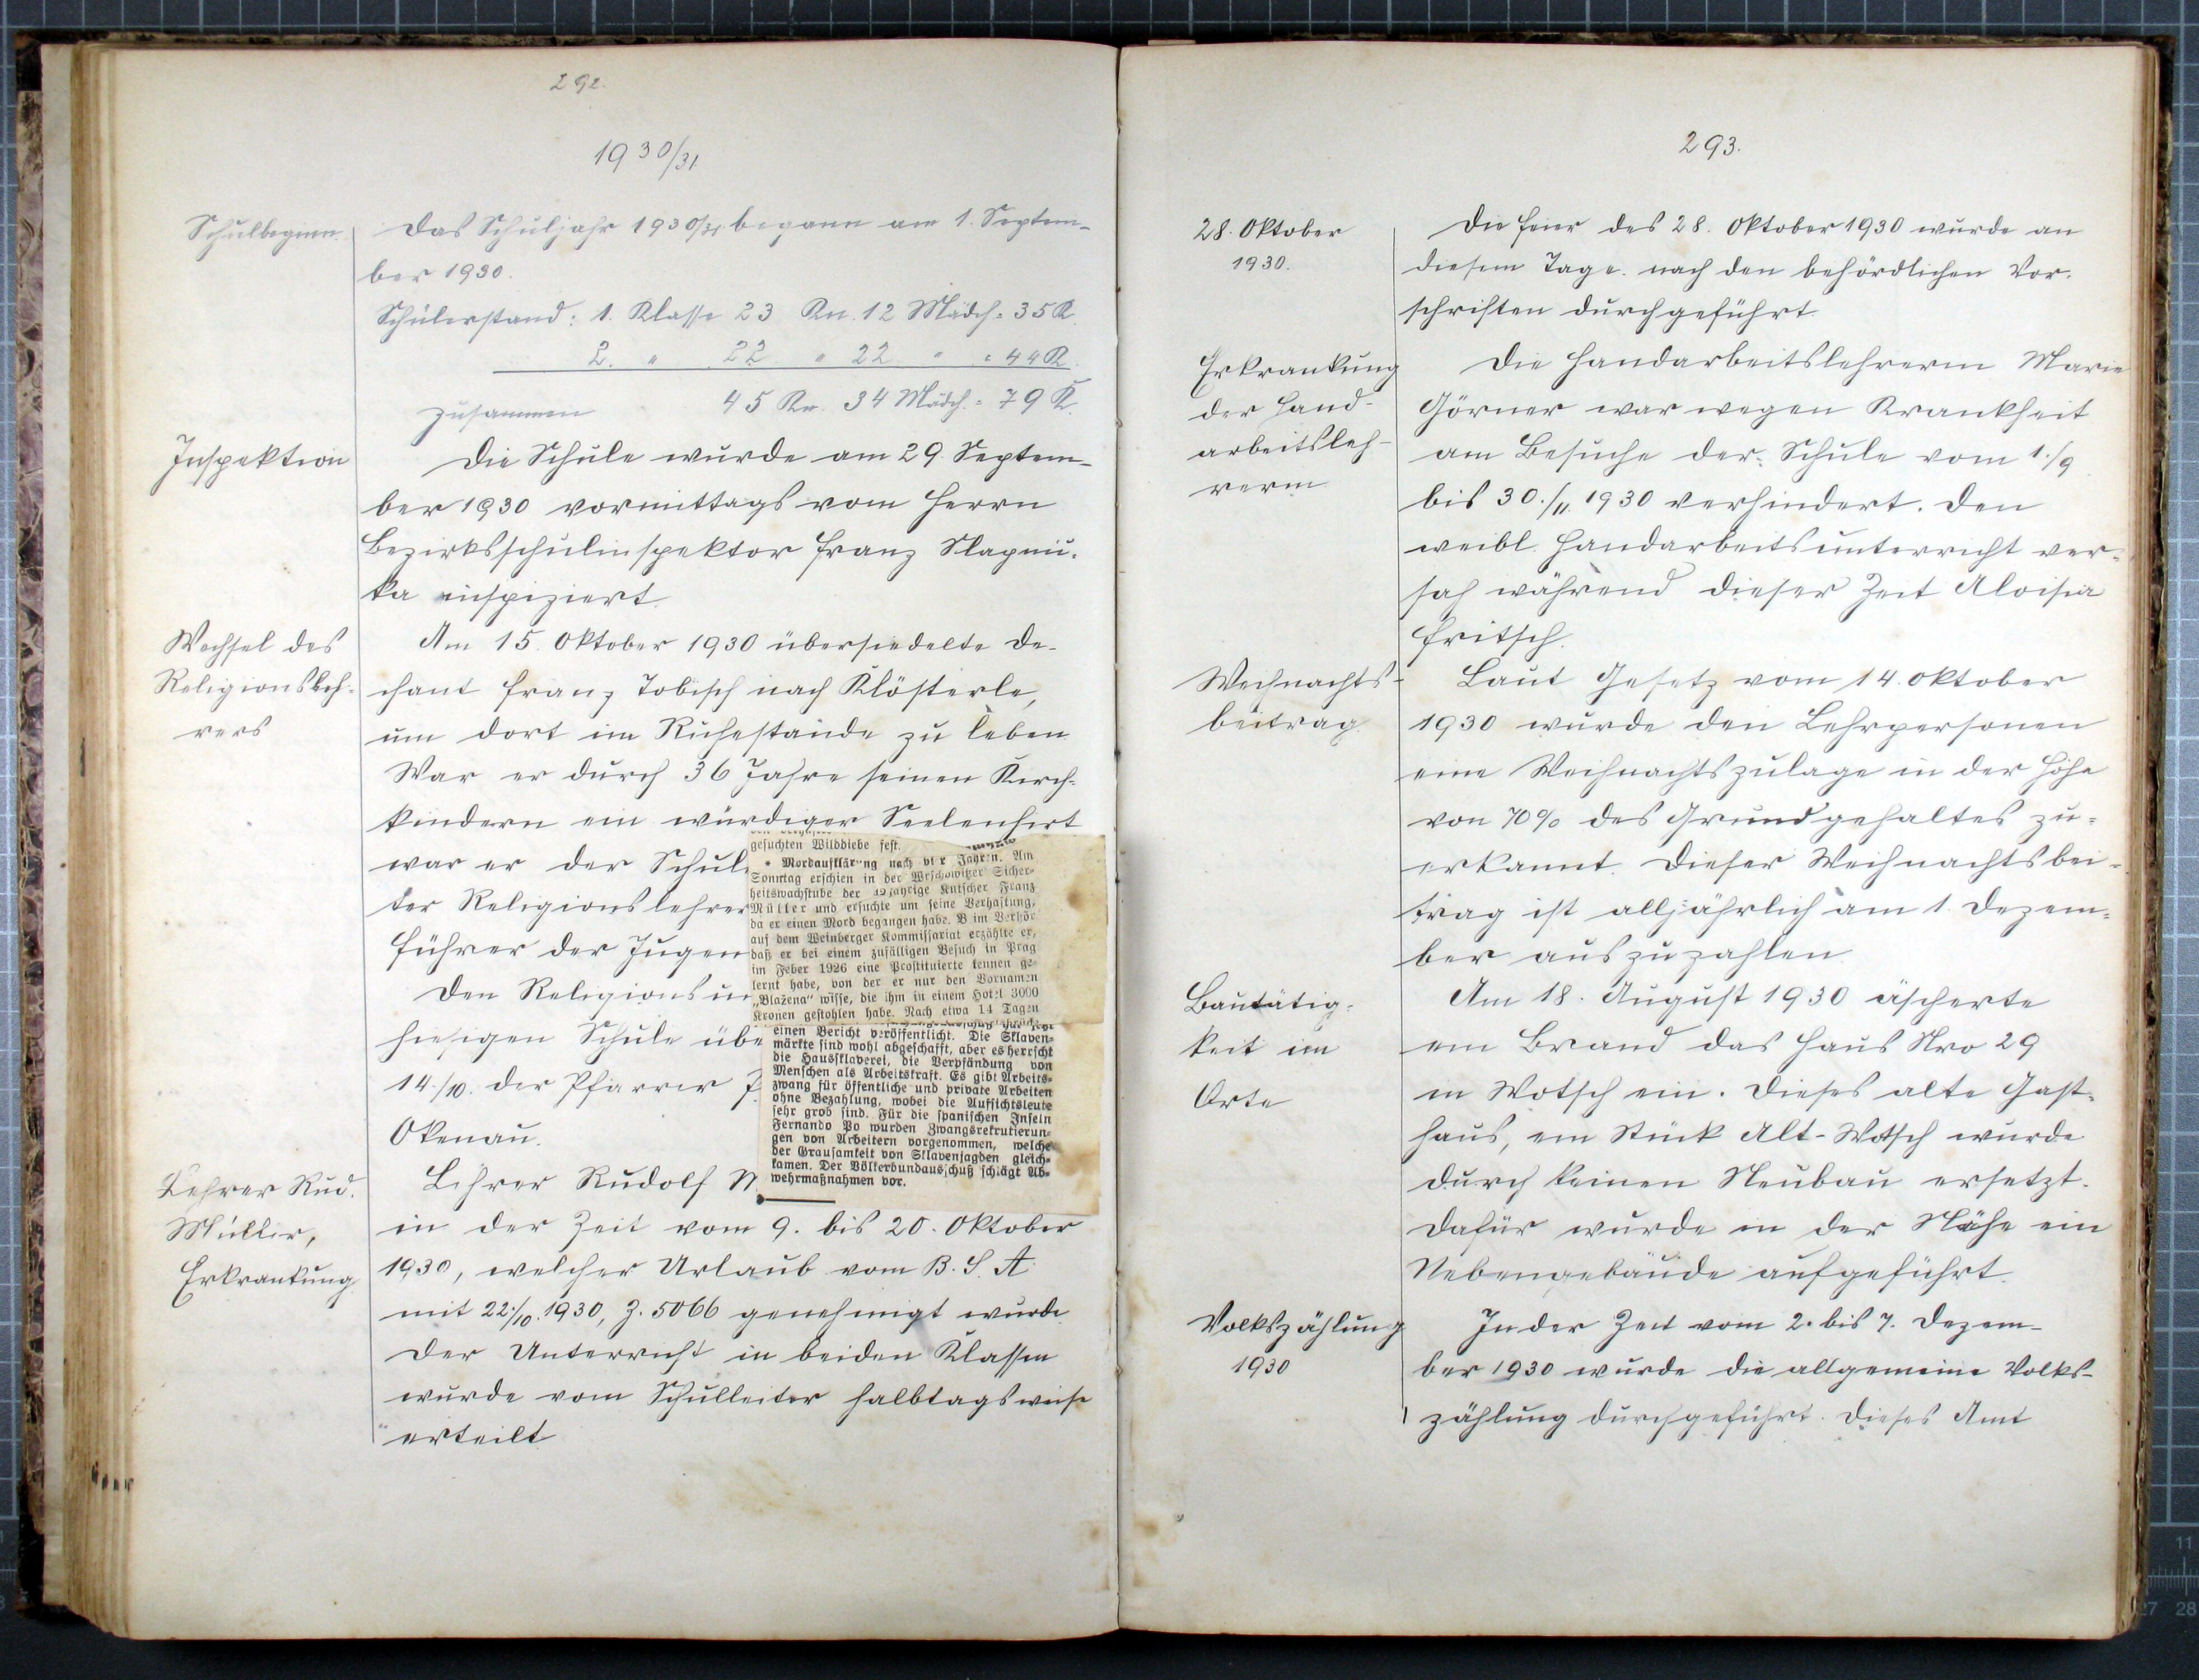 292.
1930/31.
Schulbeginn.
Das Schuljahr 1930/31 begann am 1. Septem-
ber 1930.
Schülerstand: 1. Klasse 23 Kn. 12 Mädch. = 35 K.
2. " 22 " 22 " = 44 K.
zusammen 45 Kn. 34 Mädch. = 79 K.
Inspektion
Die Schule wurde am 29. Septem-
ber 1930 vormittags vom Herrn
Bezirksschulinspektor Franz Slapni-
ka inspiziert.
Wechsel des
Religionsleh-
rers
Am 15. Oktober 1930 übersiedelte De-
chant Franz Tobisch nach Klösterle,
um dort im Ruhestande zu leben.
War er durch 36 Jahre seinen Kirch-
kindern ein würdiger Seelenhirt
war er der Schul
der Religionslehrer
führer der Jugen
Den Religionsun
hiesigen Schule übe
14./10. der Pfarrer J.
Okenau.
Lehrer Rud.
Müller,
Erkrankung
Lehrer Rudolf M
in der Zeit vom 9. bis 20. Oktober
1930, welcher Urlaub vom B. S. A.
mit 22./10. 1930, Z. 5066 genehmigt wurde.
Der Unterricht in beiden Klassen
wurde vom Schulleiter halbtagsweise
erteilt
gesuchten Wilddiebe fest.
* Mordaufklärung nach vier Jahren. Am
Sonntag erschien in der Wrschowitzer Sicher-
heitswachstube der jährige Kutscher Franz
Müller und ersuchte um seine Verhaftung,
da er einen Mord begangen habe. B im Verhör
auf dem Weinberger Kommissariat erzählte er,
daß er bei einem zufälligen Besuch in Prag
im Feber 1926 eine Prostituierte kennen ge-
lernt habe, von der er nur den Vornamen
„Blažena“ wisse, die ihm in einem Hotel 3000
Kronen gestohlen habe. Nach etwa 14 Tagen
einen Bericht veröffentlicht. Die Sklaven-
märkte sind wohl abgeschafft, aber es herrscht
die Haussklaverei, die Verpfändung von
Menschen als Arbeitskraft. Es gibt Arbeits-
zwang für öffentliche und private Arbeiten
ohne Bezahlung, wobei die Aufsichtsleute
sehr grob sind. Für die spanischen Inseln
Fernando Po wurden Zwangsrekrutierun-
gen von Arbeitern vorgenommen, welche
der Grausamkeit von Sklavenjagden gleich-
kamen. Der Völkerbundausschuß schlägt Ab-
wehrmaßnahmen vor.
293.
28. Oktober
1930.
Die Feier des 28. Oktober 1930 wurde an
diesem Tage nach den behördlichen Vor-
schriften durchgeführt.
Erkrankung
der Hand-
arbeitsleh-
rerin
Die Handarbeitslehrerin Marie
Görner war wegen Krankheit
am Besuche der Schule vom 1./9.
bis 30./11. 1930 verhindert. Den
weibl. Handarbeitsunterricht ver-
sah während dieser Zeit Aloisia
Fritsch.
Weihnachts-
beitrag.
Laut Gesetz vom 14. Oktober
1930 wurde den Lehrpersonen
eine Weihnachtszulage in der Höhe
von 70% des Grundgehaltes zu-
erkannt. Dieser Weihnachtsbei-
trag ist alljährlich am 1. Dezem-
ber auszuzahlen.
Bautätig-
keit im
Orte
Am 18. August 1930 äscherte
ein Brand das Haus Nro 29
in Wotsch ein. Dieses alte Gast-
haus, ein Stück Alt-Wotsch wurde
durch keinen Neubau ersetzt.
Dafür wurde in der Nähe ein
Nebengebäude aufgeführt.
Volkszählung
1930
In der Zeit vom 2. bis 7. Dezem-
ber 1930 wurde die allgemeine Volks-
zählung durchgeführt. Dieses Amt
11
27 28